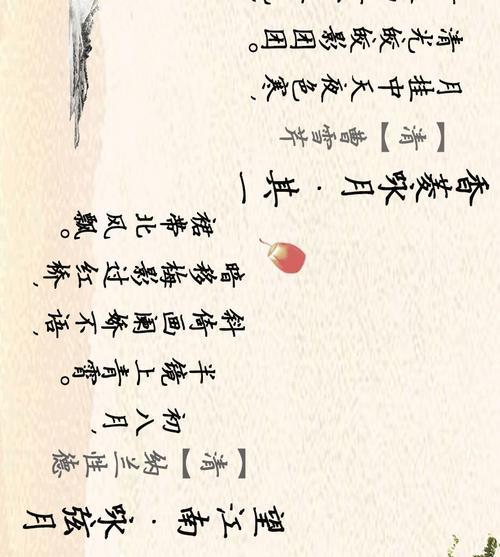 望江南·咏弦月
【清】纳兰性德
初八月，
半镜上青霄。
斜倚画阑娇不语，
暗移梅影过红桥，
裙带北风飘。
香菱咏月·其一
【清】曹雪芹
月挂中天夜色寒，
清光皎皎影团团。